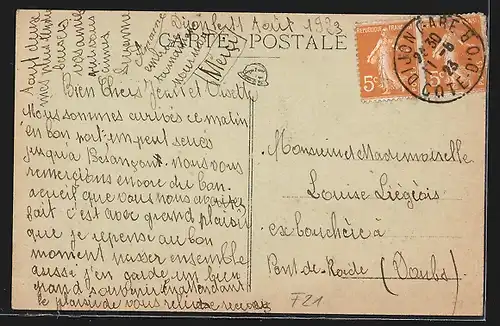 Dijon le 11 Août 1923
CARTE POSTALE
Merci
Bien Chers Jean et Ginette
Nous sommes arrivés ce matin
en bon port un peu serrés
jusqu'à Besançon. nous vous
remercions encore du bon
accueil que vous nous avez
fait c'est avec grand plaisir
que je repense au bon
moment passer ensemble
aussi j'en garde un bien
grand souvenir en attendant
le plaisir de vous
A vous deux
mes plus
baisers
Suzanne
5c
5c
DIJON GARE
COTE-D'OR
Monsieur et Mademoiselle
Louise Liégeois
ex boucherie à
Pont-de-Roide (Doubs)
F21